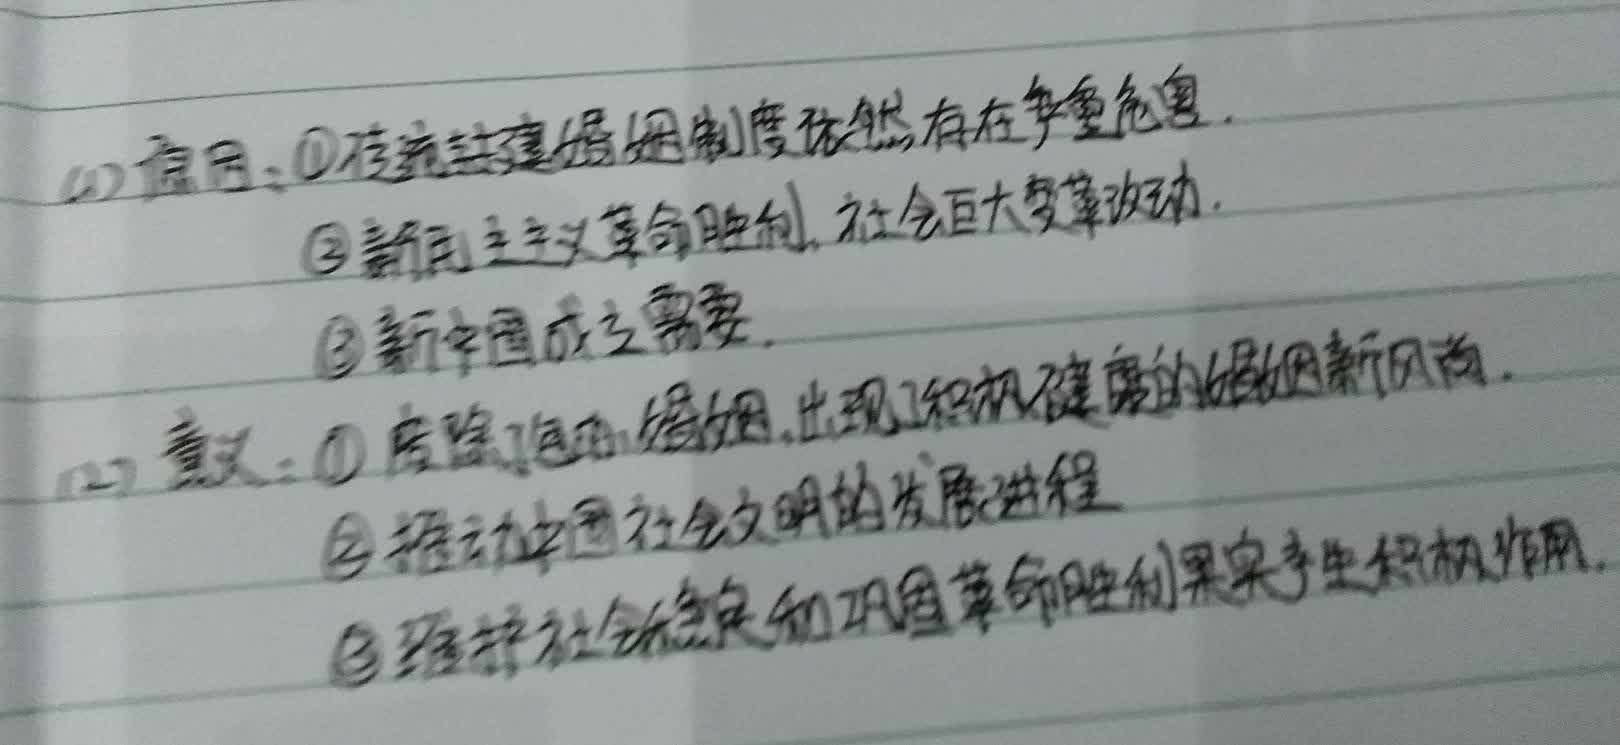 (1) 原因：①传统封建婚姻制度依然存在严重危害.
②新民主主义革命胜利，社会巨大变革改动.
③新中国成立需要.
(2) 意义：①废除包办婚姻，出现了积极健康的婚姻新风尚.
②推动中国社会文明的发展进程
③维护社会稳定和巩固革命胜利果实产生积极作用.